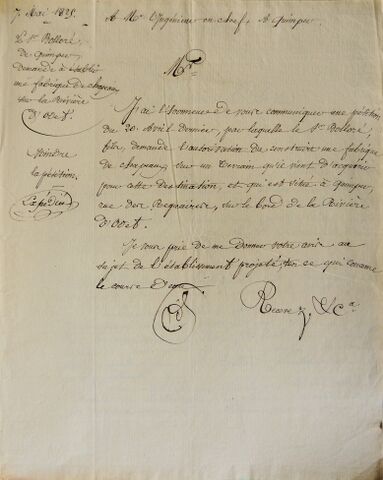 7 Mai 1825.
Le Sr. Bolloré
de Quimper
demande à établir
une fabrique de chapeaux
sur la Rivière
d'Odet.
Joindre
la pétition.
Expédiée
A Mr. l'Ingénieur en chef. A Quimper.
Mr.
J'ai l'honneur de vous communiquer une pétition
du 20 Avril dernier, par laquelle le Sr. Bolloré,
fils, demande l'autorisation de construire une fabrique
de chapeaux, sur un terrain qu'il vient d'acquérir
pour cette destination, et qui est situé à Quimper,
rue des Regaires, sur le bord de la Rivière
d'Odet.
Je vous prie de me donner votre avis au
sujet de l'établissement projeté, en ce qui concerne
le cours d'eau
Recevez, &ca.